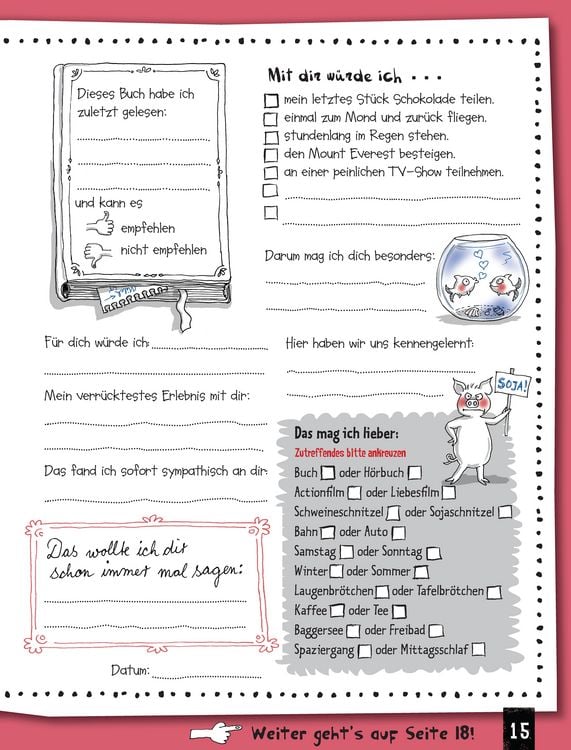 Dieses Buch habe ich
zuletzt gelesen:
und kann es
empfehlen
nicht empfehlen
Mit dir würde ich . . .
mein letztes Stück Schokolade teilen.
einmal zum Mond und zurück fliegen.
stundenlang im Regen stehen.
den Mount Everest besteigen.
an einer peinlichen TV-Show teilnehmen.
Darum mag ich dich besonders:
Für dich würde ich:
Mein verrücktestes Erlebnis mit dir:
Das fand ich sofort sympathisch an dir:
Hier haben wir uns kennengelernt:
SOJA!
Das mag ich lieber:
Zutreffendes bitte ankreuzen
Buch oder Hörbuch
Actionfilm oder Liebesfilm
Schweineschnitzel oder Sojaschnitzel
Bahn oder Auto
Samstag oder Sonntag
Winter oder Sommer
Laugenbrötchen oder Tafelbrötchen
Kaffee oder Tee
Baggersee oder Freibad
Spaziergang oder Mittagsschlaf
Das wollte ich dir
schon immer mal sagen:
Datum:
Weiter geht's auf Seite 18!
15